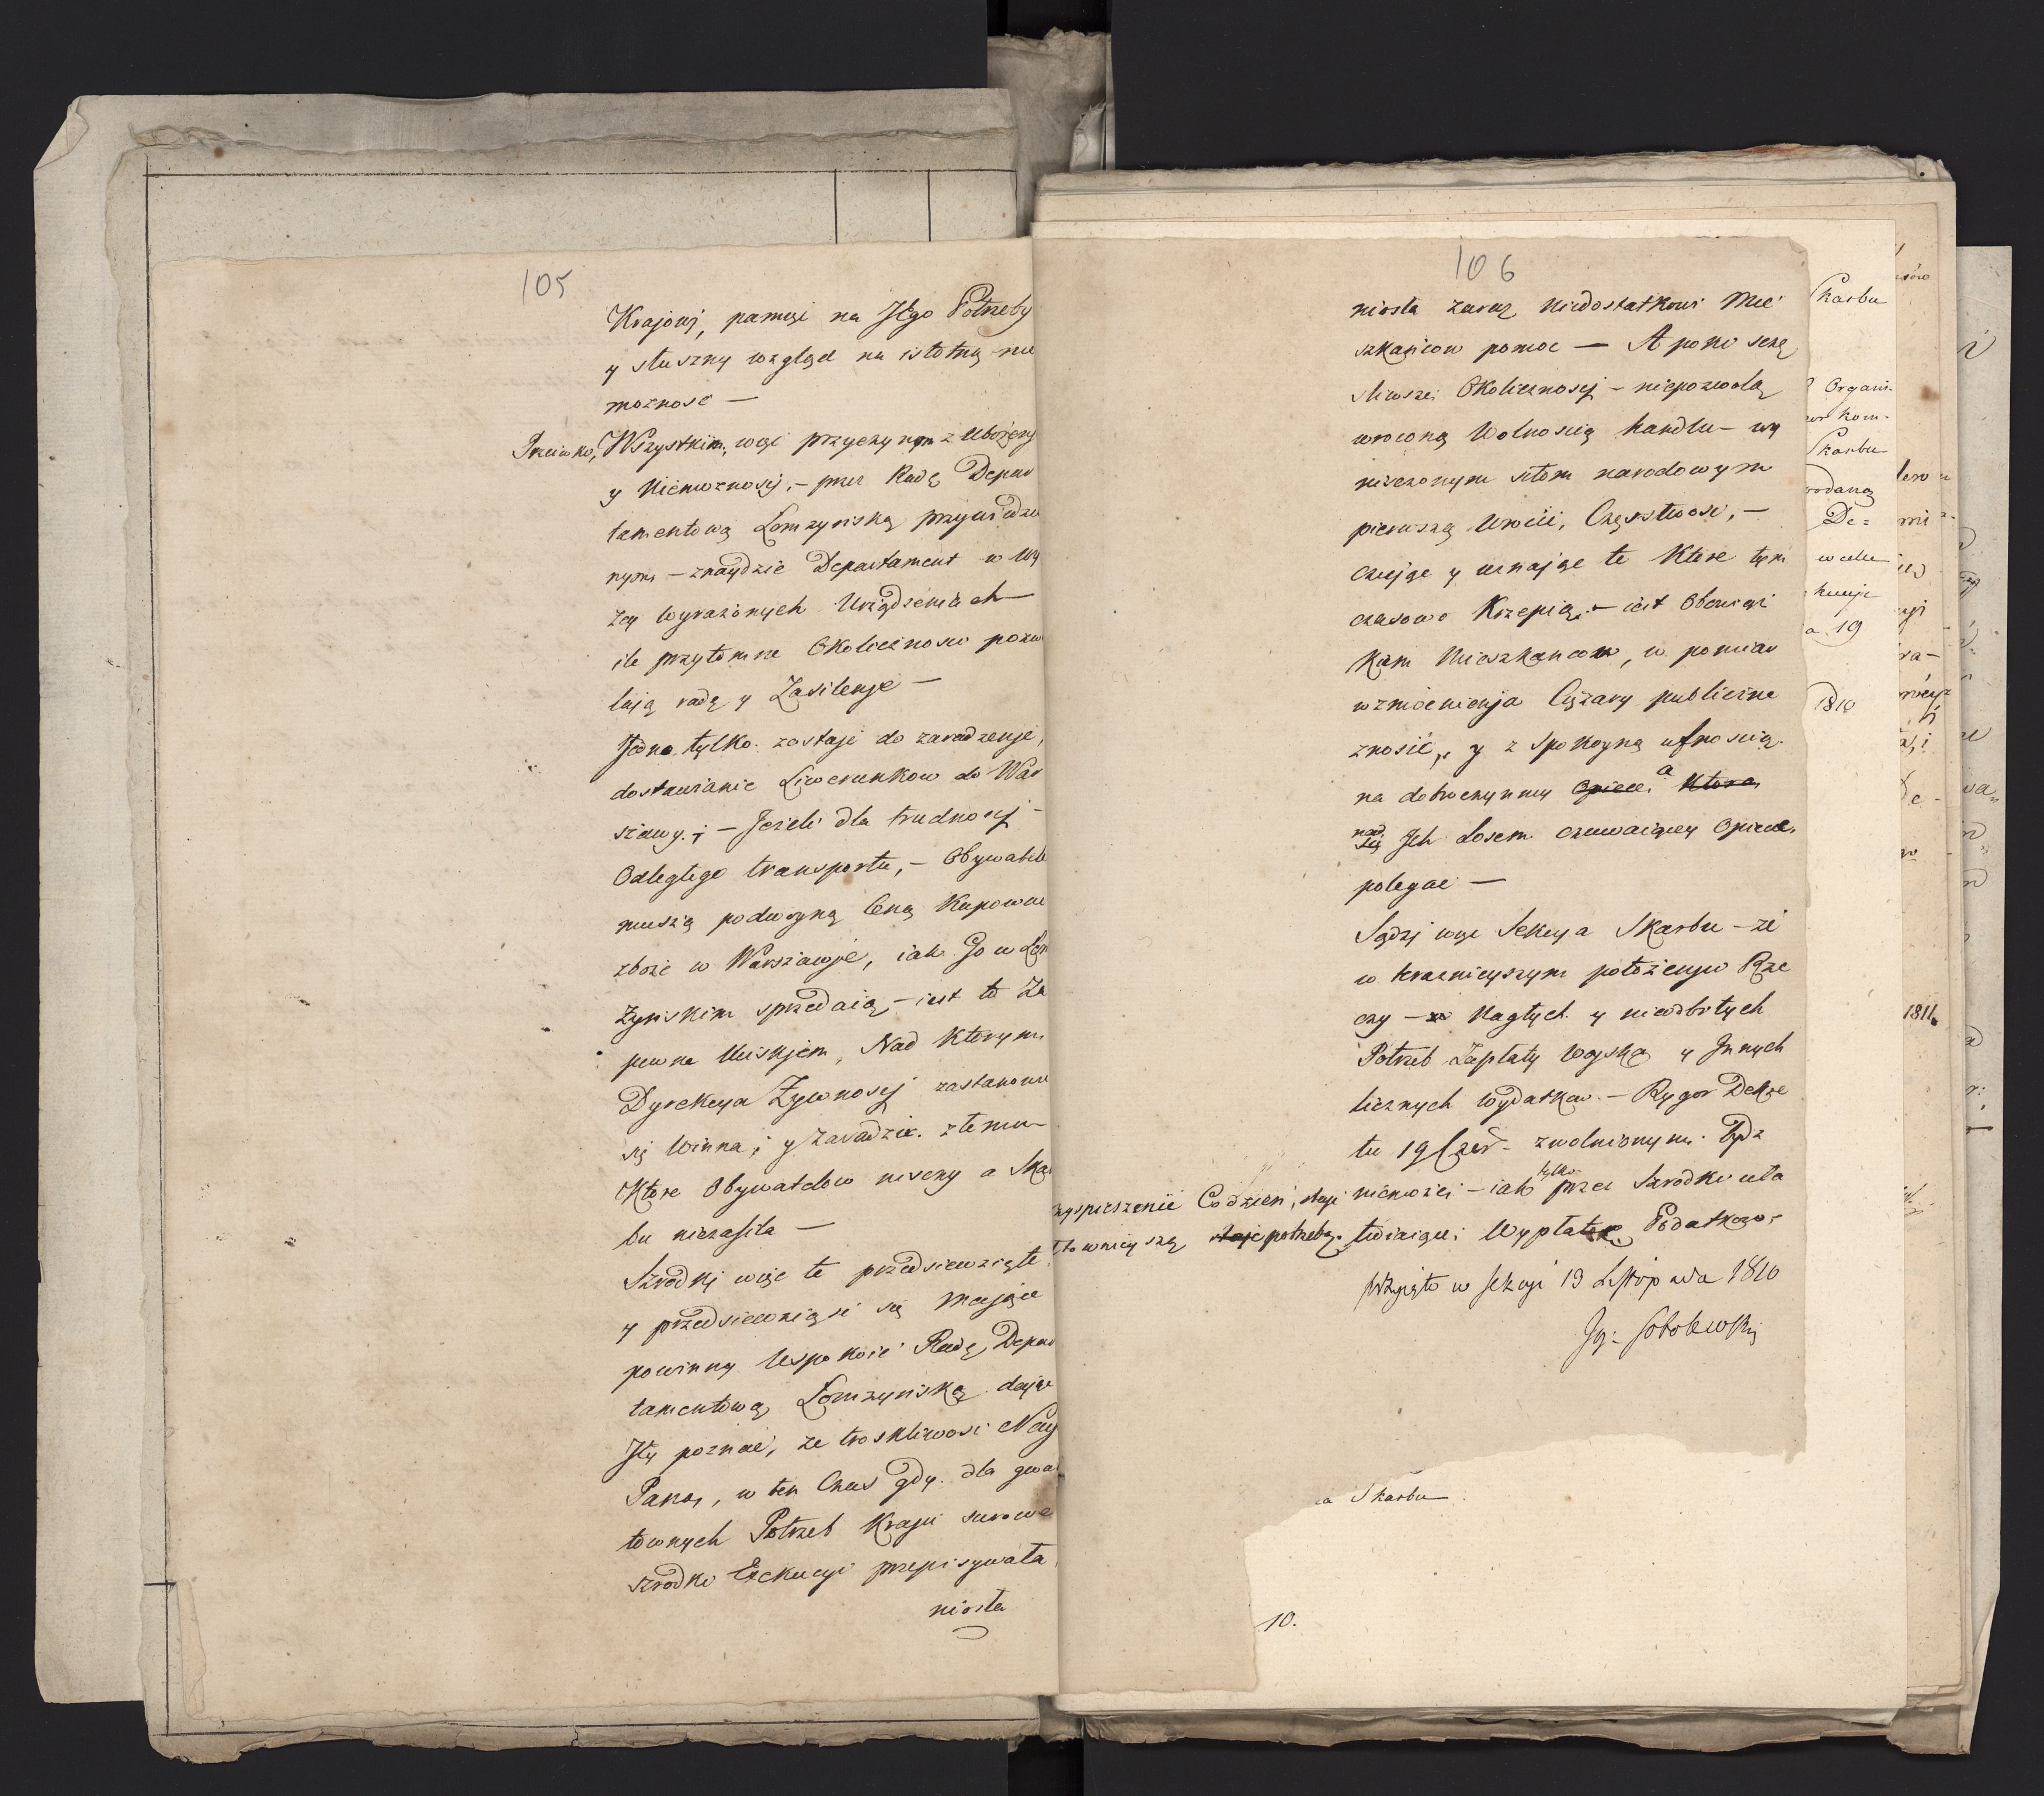 105
Krajowj, pamięć na Jego Potrzeby
y słuszny wzgląd na istotną nie
możnosc —
Przeciwko, Wszystkim więc przyczynom z Ubożeny
y Niemoznosci, — przez Radę Depar
tamentową Łomzynską przywiedzio
nym — znaydzie Departament w Wy
zey wyrażonych Urządzeniach
ile przytomne Okolicznosci pozwa
laią radę y Zasilenje —
Jedno tylko zostaje do zaradzenje,
dostawianie Liwerunkow do War
szawy. ; — Jeżeli dla trudnosci —
Odległego transportu, — Obywatele
muszą podwoyną Ceną Kupować
zboże w Warszawje, iak Go w Łom
żynskim sprzedaią — iest to Za
pewne Uciskjem, Nad Którym
Dyrekcya Żywnosci zastanowić
się Winna, y Zaradzic złemu —
Ktore Obywatelow niszczy a Skar
bu niezasila —
Szrodkj więc te przedsiewzięte
y przedsiewziąść się Mające
powinny Uspokoić Radę Depar
tamentową Łomzynską dając
Jey poznać, że troskliwosć Nay
Pana, w ten Czas gdy dla gwał
townych Potrzeb Kraju surowe
szrodki Exekucyi przepisywała
niosła
106
niosła zaraz niedostatkowi Mie
szkańcow pomoc — A poki szczę
sliwsze Okolicznosci — niepozwolą
wroconą Wolnoscią handlu — wy
niszczonym siłom narodowym
pierwszą Wrócić, Częrstwosc, —
czując y uznając te Ktore tym
czasowo Krzepią. — iest Obowiąz
kiem Mieszkancow, w pomiar
wzmocnienja Ciężary publiczne
znosić, y z Spokoyną ufnoscią
na dobroczynney Opiece, a Ktora
nad Ich Losem czuwaiącey Opiece,
polegac —
Sądzj więc Sekcya Skarbu — że
w terazniejszym położenju Rze
czy — w Nagłych y niedbitych
Potrzeb Zapłaty Woyska y Innych
licznych Wydatkow. — Rygor Dekre
tu 19 Czer. zwolnionym bydz
niemoże — iak tylko przez Szrodki uła
twiaiące Wypłatę Podatkow,
przyspieszenie Codzień, staje
gwałtownieyszą staje potrzebą.
Przyięto w Sekcyi 13 Listopada 1810
Ig: Sobolewskj
a Skarbu
10.
Skarbu
Organi-
Kom-
Skarbu
De=
w celu
a 19
1810
1811.